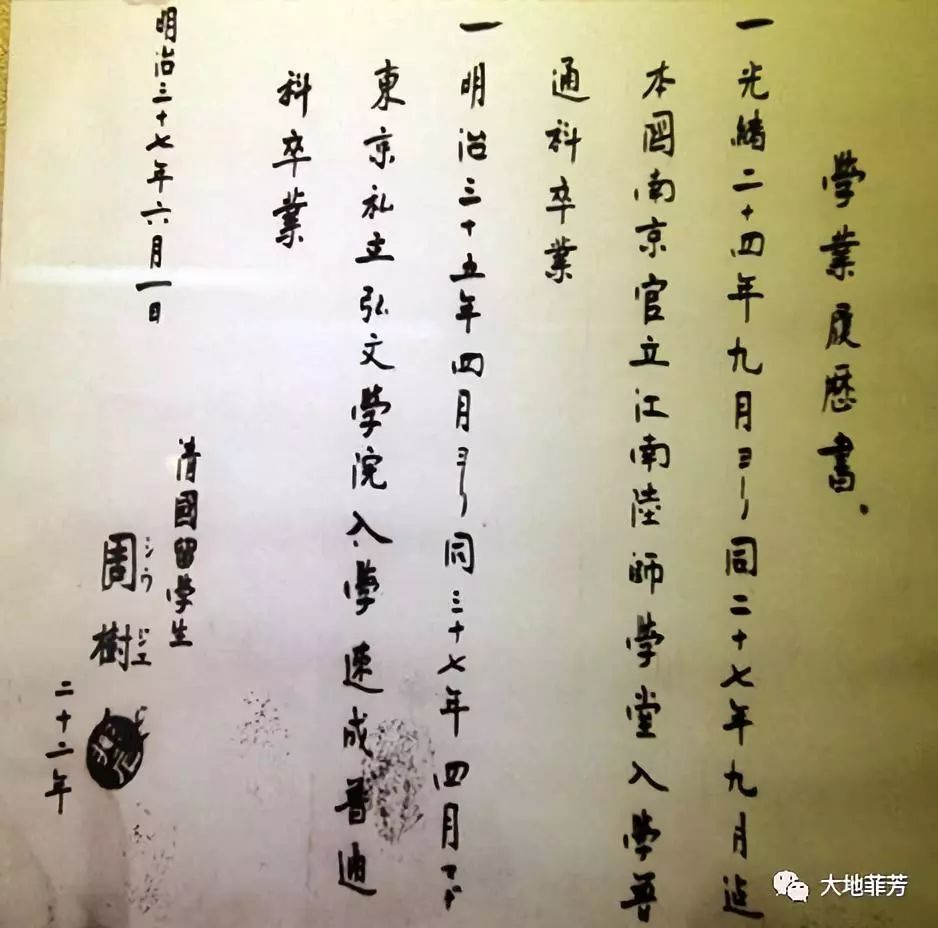 學業履歴書、
一光緒二十四年九月ヨリ同二十七年九月迠
本國南京官立江南陸師学堂入学普
通科卒業
一明治三十五年四月ヨリ同三十七年四月マデ
東京私立弘文學院入学速成普通
科卒業
明治三十七年六月一日
清國留学生
周樹
シウ
二十二年
大地菲芳